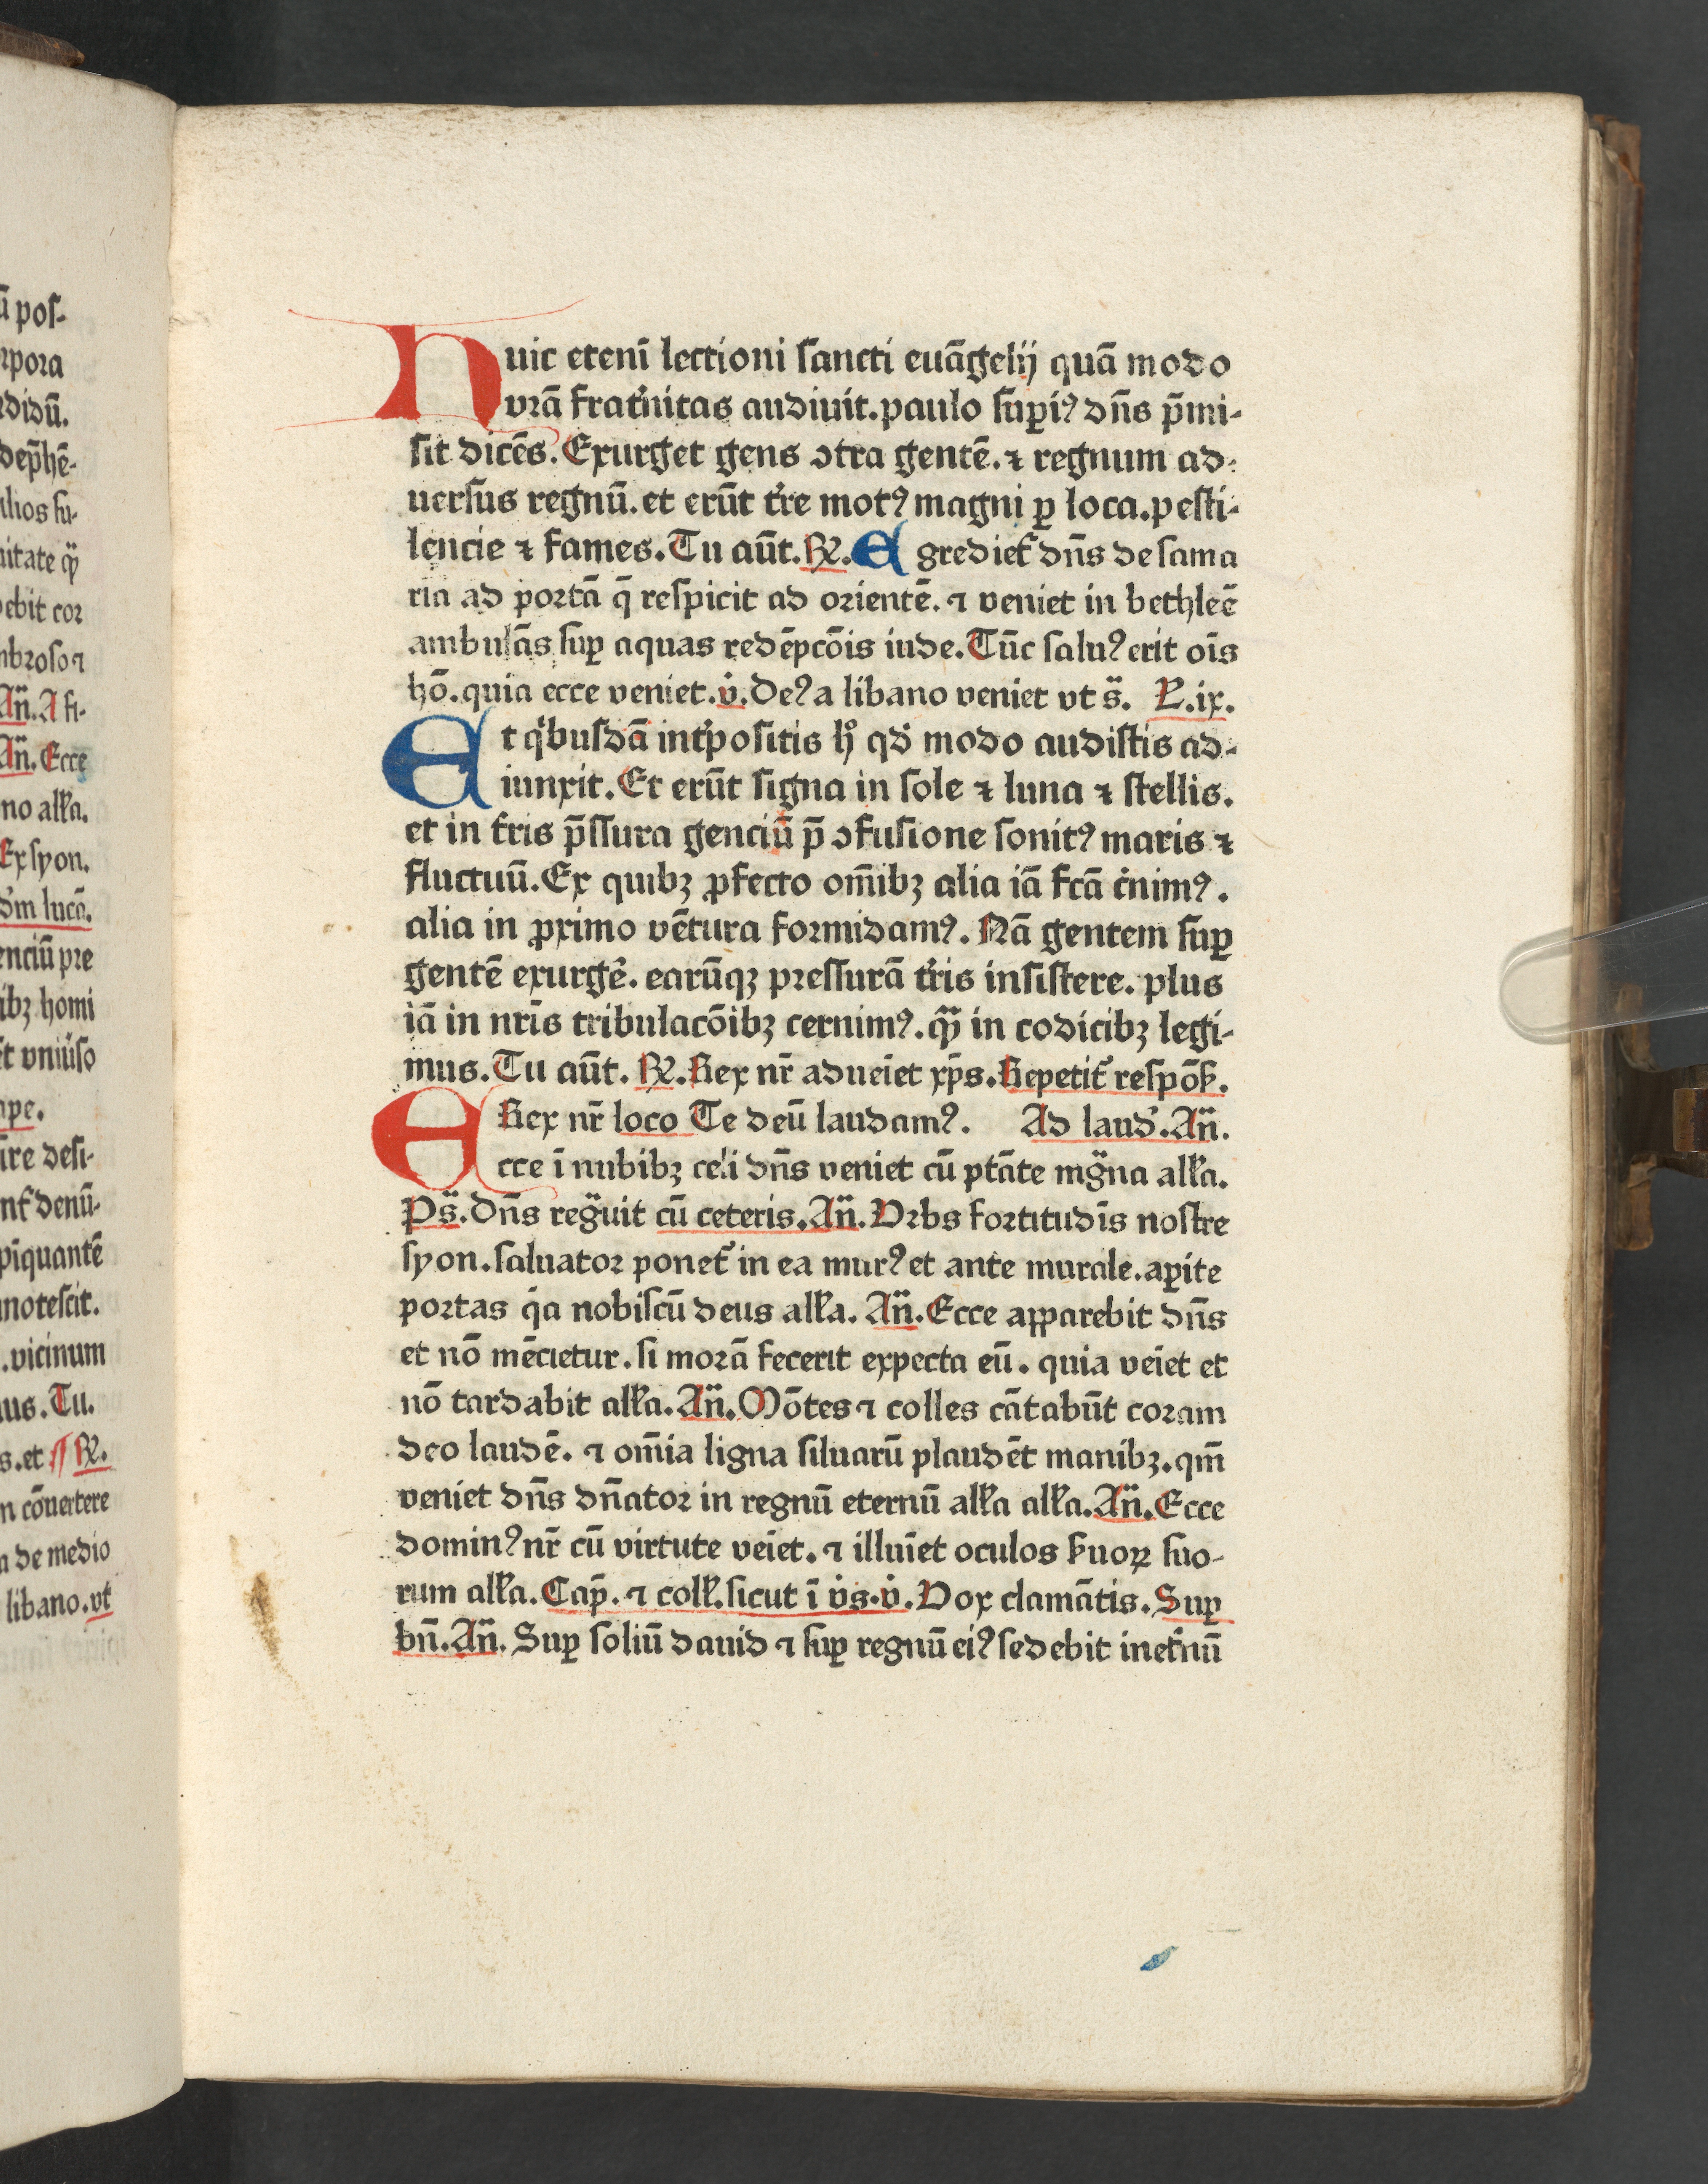 ū poſ-
rpora
rdidū.
dep̄hē-
ilios ſu-
nitate
ebit cor
mbroſo ⁊
An̄. A fi-
An̄. Ecce
no all'a.
Ex syon.
ẜm lucā.
enciū pre
ibꝫ homi
et vniu'ſo
ape.
ire deſi-
nt' denū-
piquantē
noteſcit.
.vicinum
us. Tu.
s. et ℟.
n cōuertere
a de medio
libano. vt
Huic etenī lectioni ſancti euāgelij quā modo
vrā frat'nitas audiuit. paulo ſuꝑiꝰ dn̄s p̄mi-
ſit dicēs. Exurget gens ↄtra gentē. ⁊ regnum ad-
uerſus regnū. et erūt t're motꝰ magni ꝑ loca. peſti-
lencie ⁊ fames. Tu aūt. ℟. Egrediet' dn̄s de ſama
ria ad portā q̄ reſpicit ad orientē. ⁊ veniet in bethleē
ambulās ſuꝑ aquas redēpcōis iude. Tūc ſaluꝰ erit oīs
hō. quia ecce veniet. v̇. Deꝰ a libano veniet vt s̄. L. ix.
Et q'buſdā int'poſitis h° qd' modo audiſtis ad-
iunxit. Et erūt ſigna in ſole ⁊ luna ⁊ ſtellis.
et in t'ris p̄ſſura genciū p̄ ↄfuſione ſonitꝰ maris ⁊
fluctuū. Ex quibꝫ ꝓfecto om̄ibꝫ alia iā fcā c'nimꝰ.
alia in ꝓximo vētura formidamꝰ. Nā gentem ſuꝑ
gentē exurge'. earūqꝫ preſſurā t'ris inſiſtere. plus
iā in nr̄is tribulacōibꝫ cernimꝰ. qᷓꝫ in codicibꝫ legi-
mus. Tu aūt. ℟. Rex nr̄ adueīet xp̄s. Repetit' reſpōſ.
Rex nr̄ loco Te deū laudamꝰ. Ad laud'. An̄.
Ecce ī nubibꝫ celi dn̄s veniet cū ptāte mgᷓna all'a.
Ps̄. Dn̄s regᷓuit cū ceteris. An̄. Vrbs fortitudīs noſtre
ſyon. ſaluator ponet' in ea murꝰ et ante murale. aꝑite
portas q'a nobiſcū deus all'a. An̄. Ecce apparebit dn̄s
et nō mēcietur. ſi morā fecerit expecta eū. quia veīet et
nō tardabit all'a. An̄. Mōtes ⁊ colles cātabūt coram
deo laudē. ⁊ om̄ia ligna ſiluarū plaudēt manibꝫ. qm̄
veniet dn̄s dn̄ator in regnū eternū all'a all'a. An̄. Ecce
dominꝰ nr̄ cū virtute veīet. ⁊ illuīet oculos ſ'uoꝝ ſuo-
rum all'a. Cap̄. ⁊ coll'. ſicut ī v̇s. v̇. Vox clamātis. Suꝑ
bn̄. An̄. Suꝑ ſoliū dauid ⁊ ſuꝑ regnū eiꝰ ſedebit in et'nū